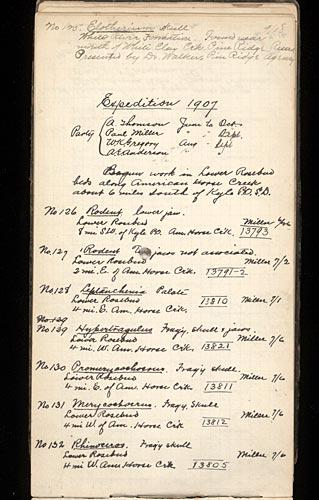 No 125. Elotherium skull
White River Formation Found near
mouth of White Clay Crk. Pine Ridge
Presented by Dr. Walker, Pine Ridge Agency
Expedition 1907
A. Thomson June to Oct.
Party Paul Miller " " Sept.
W.K. Gregory Aug - Sept
A.E. Anderson " "
Began work in Lower Rosebud
beds along American Horse Creek
about 6 miles south of Kyle P.O. S.D.
No 126 Rodent lower jaw.
Lower Rosebud Miller
8 mi S.W. of Kyle P.O. Am. Horse Crk. 13793
No 127 Rodent Two jaws not associated
Lower Rosebud Miller 7/2
2 mi. E. of Am Horse Crk 13791-2
No 128 Leptauchenia Palate
Lower Rosebud 13810 Miller 7/1
4 mi. E. Am. Horse Crk.
No 129
No 129 Hypertragulus Frag'y skull & jaws
Lower Rosebud Miller 7/6
4 mi. W. Am. Horse Crk. 13821
No 130 Promerycochoerus. Frag'y skull
Lower Rosebud Miller 7/6
4 mi. E. of Am. Horse Crk 13811
No 131 Merycochoerus. Frag'y. Skull
Lower Rosebud Miller 7/6
4 mi W of Am. Horse Crk 13812
No 132 Rhinoceros. Frag'y skull
Lower Rosebud Miller 7/6
4 mi W. Am. Horse Crk 13805